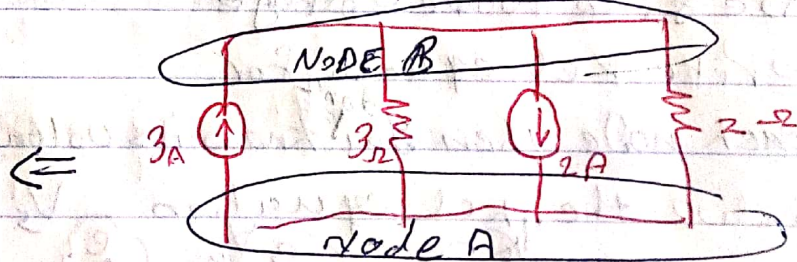 NODE B
3A
3Ω
2A
2 Ω
Node A